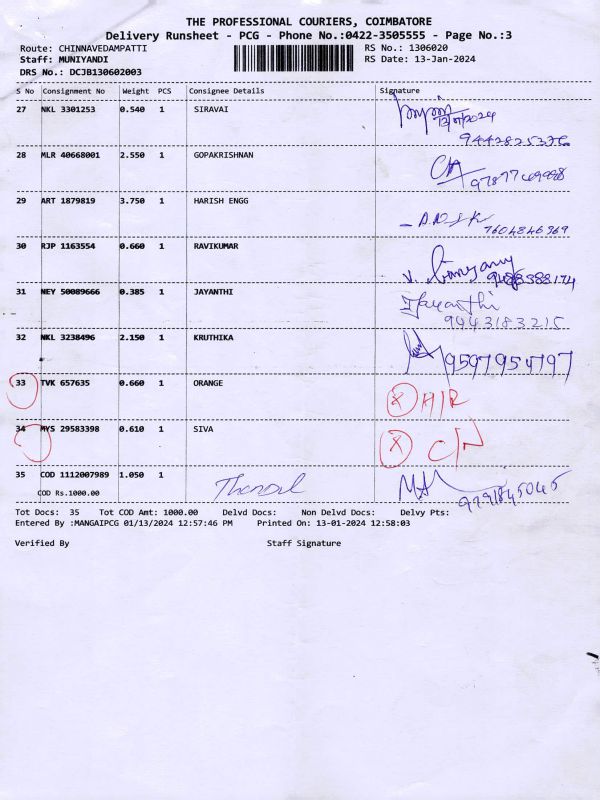 THE PROFESSIONAL COURIERS, COIMBATORE
Delivery Runsheet - PCG - Phone No.:0422-3505555 - Page No.:3
Route: CHINNAVEDAMPATTI RS No.: 1306020
Staff: MUNIYANDI RS Date: 13-Jan-2024
DRS No.: DCJB130602003
S No Consignment No Weight PCS Consignee Details Signature
27 NKL 3301253 0.540 1 SIRAVAI
28 MLR 40668001 2.550 1 GOPAKRISHNAN
29 ART 1879819 3.750 1 HARISH ENGG
7604846969
30 RJP 1163554 0.660 1 RAVIKUMAR
31 NEY 50089666 0.385 1 JAYANTHI Jayanthi
9443183215
32 NKL 3238496 2.150 1 KRUTHIKA 9597954797
33 TVK 657635 0.660 1 ORANGE X A/R
34 MYS 29583398 0.610 1 SIVA X C/N
35 COD 1112007989 1.050 1 9791845045
COD Rs.1000.00
Tot Docs: 35 Tot COD Amt: 1000.00 Delvd Docs: Non Delvd Docs: Delvy Pts:
Entered By :MANGAIPCG 01/13/2024 12:57:46 PM Printed On: 13-01-2024 12:58:03
Verified By Staff Signature